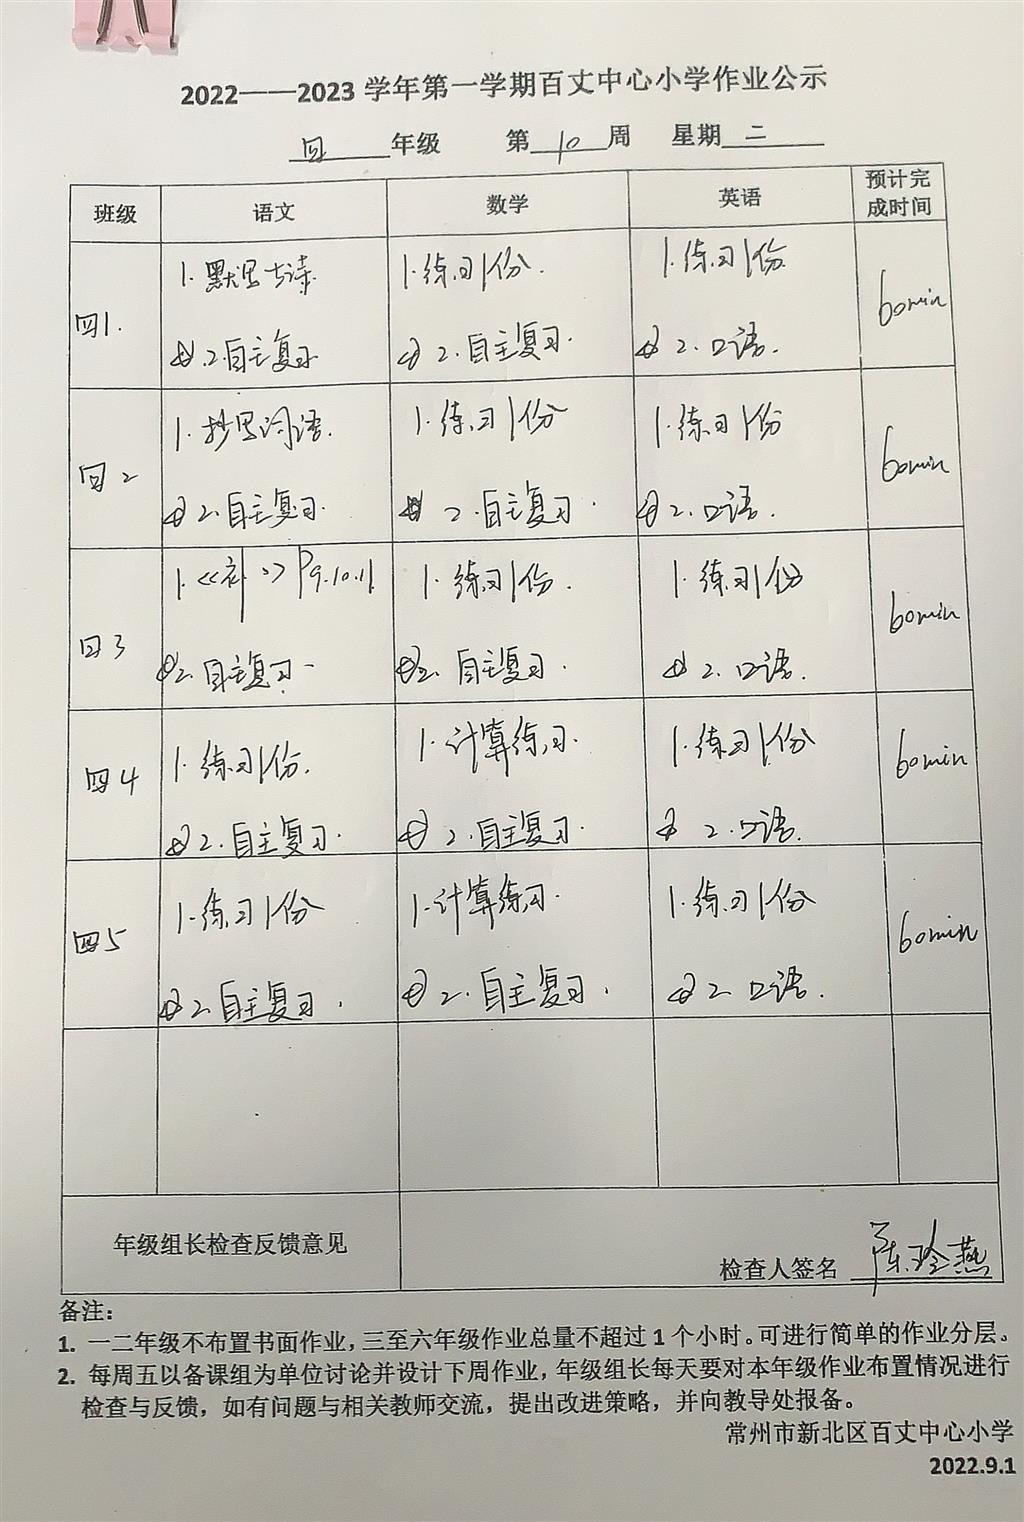 2022——2023 学年第一学期百丈中心小学作业公示
四 年级 第 10 周 星期 二
班级 语文 数学 英语 预计完成时间
四1. 1.默写古诗 1.练习1份. 1.练习1份. 60min
2.自主复习 2.自主复习. 2.口语.
四2 1.抄写词语. 1.练习1份 1.练习1份 60min
2.自主复习. 2.自主复习. 2.口语.
四3 1.《补》P9.10.11. 1.练习1份. 1.练习1份 60min
2.自主复习. 2.自主复习. 2.口语.
四4 1.练习1份. 1.计算练习. 1.练习1份 60min
2.自主复习. 2.自主复习. 2.口语.
四5 1.练习1份 1.计算练习. 1.练习1份 60min
2.自主复习. 2.自主复习. 2.口语.
年级组长检查反馈意见 检查人签名 陈玲燕
备注：
1. 一二年级不布置书面作业，三至六年级作业总量不超过 1 个小时。可进行简单的作业分层。
2. 每周五以备课组为单位讨论并设计下周作业，年级组长每天要对本年级作业布置情况进行
检查与反馈，如有问题与相关教师交流，提出改进策略，并向教导处报备。
常州市新北区百丈中心小学
2022.9.1